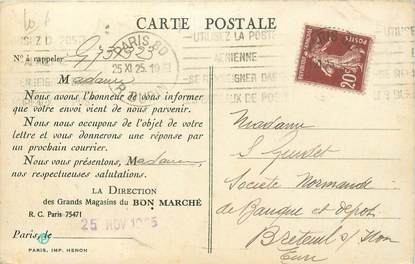 CARTE POSTALE
N° à rappeler
Madame
Nous avons l'honneur de vous informer
que votre envoi vient de nous parvenir.
Nous nous occupons de l'objet de votre
lettre et vous donnerons une réponse par
un prochain courrier.
Nous vous présentons, Madame,
nos respectueuses salutations.
LA DIRECTION
des Grands Magasins du BON MARCHÉ
R. C. Paris 75471
Paris, le
25 NOV 1925
PARIS, IMP. HENON
PARIS
25 XI 25
UTILISEZ LA POSTE
AERIENNE
20c
Madame
Société Normande
de Banque et dépôt
Breteuil s/ Iton
Eure